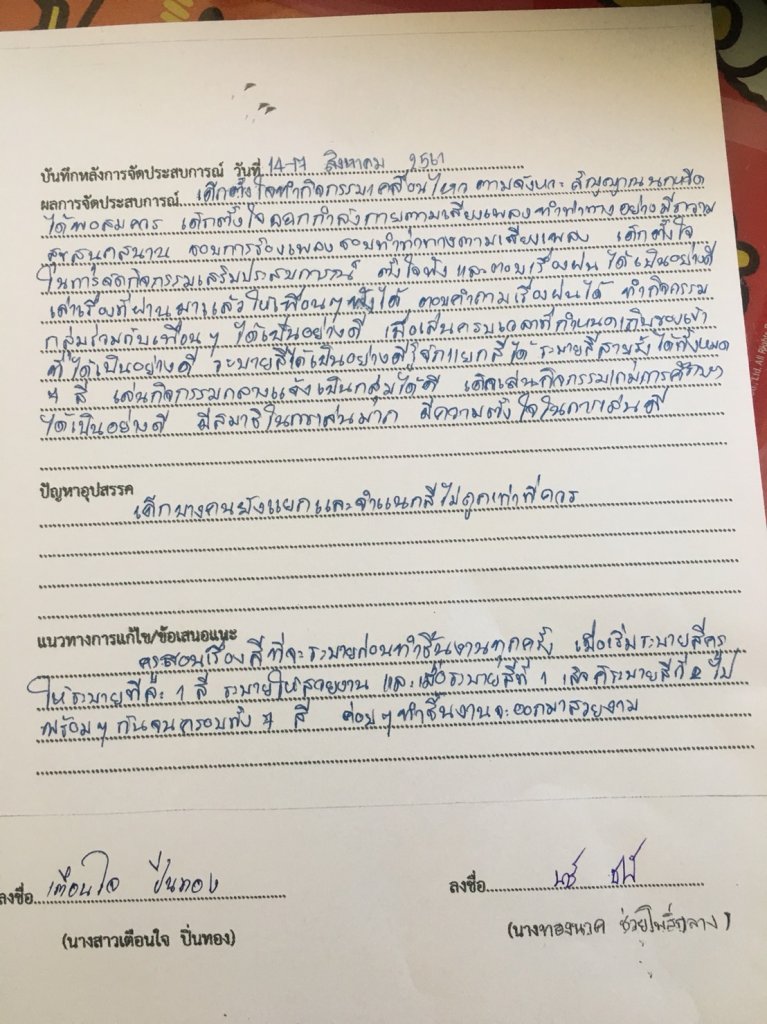 บันทึกหลังการจัดประสบการณ์ วันที่ 14-17 สิงหาคม 2561
ผลการจัดประสบการณ์ เด็กตั้งใจทำกิจกรรมเคลื่อนไหว ตามจังหวะ สัญญาณนกหวีด
ได้พอสมควร เด็กตั้งใจออกกำลังกายตามเสียงเพลง ทำท่าทางอย่างมีความ
สุขสนุกสนาน ชอบการร้องเพลง ชอบทำท่าทางตามเสียงเพลง เด็กตั้งใจ
ในการจัดกิจกรรมเสริมประสบการณ์ ตั้งใจฟัง และตอบเรื่องฝน ได้เป็นอย่างดี
เล่าเรื่องที่ผ่านมาแล้วให้เพื่อนๆ ฟังได้ ตอบคำถามเรื่องฝนได้ ทำกิจกรรม
กลุ่มร่วมกับเพื่อนๆ ได้เป็นอย่างดี เมื่อเล่นครบเวลาที่กำหนดเก็บของเข้า
ที่ได้เป็นอย่างดี ระบายสีได้เป็นอย่างดีรู้จักแยกสีได้ ระบายสีสายรุ้งได้ทั้งหมด
7 สี เล่นกิจกรรมกลางแจ้งเป็นกลุ่มได้ดี เด็กเล่นกิจกรรมเกมการศึกษา
ได้เป็นอย่างดี มีสมาธิในการเล่นมาก มีความตั้งใจในการเล่นดี
ปัญหาอุปสรรค
เด็กบางคนยังแยกและจำแนกสีไม่ถูกเท่าที่ควร
แนวทางการแก้ไข/ข้อเสนอแนะ
ครูสอนเรื่องสีที่จะระบายก่อนทำชิ้นงานทุกครั้ง เมื่อเริ่มระบายสีครู
ให้ระบายทีละ 1 สี ระบายให้สวยงาม และเมื่อระบายสีที่ 1 เสร็จ ก็ระบายสีที่ 2 ไป
พร้อมๆ กันจนครบทั้ง 7 สี ค่อยๆ ทำชิ้นงานจะออกมาสวยงาม
ลงชื่อ เตือนใจ ปิ่นทอง
ลงชื่อ
(นางสาวเตือนใจ ปิ่นทอง)
(นางทองนวค ช่วยโพธิ์กลาง)